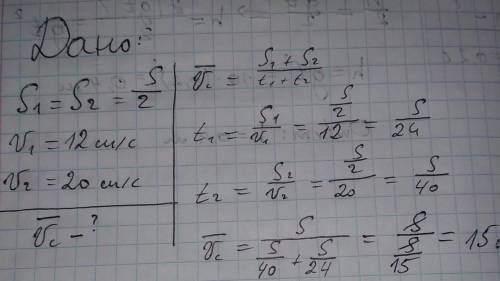 Дано:
S₁ = S₂ = S/2
v₁ = 12 м/с
v₂ = 20 м/с
v̅c - ?
v̅c = (S₁ + S₂)/(t₁ + t₂)
t₁ = S₁/v₁ = (S/2)/12 = S/24
t₂ = S₂/v₂ = (S/2)/20 = S/40
v̅c = S/(S/40 + S/24) = S/(S/15) = 15